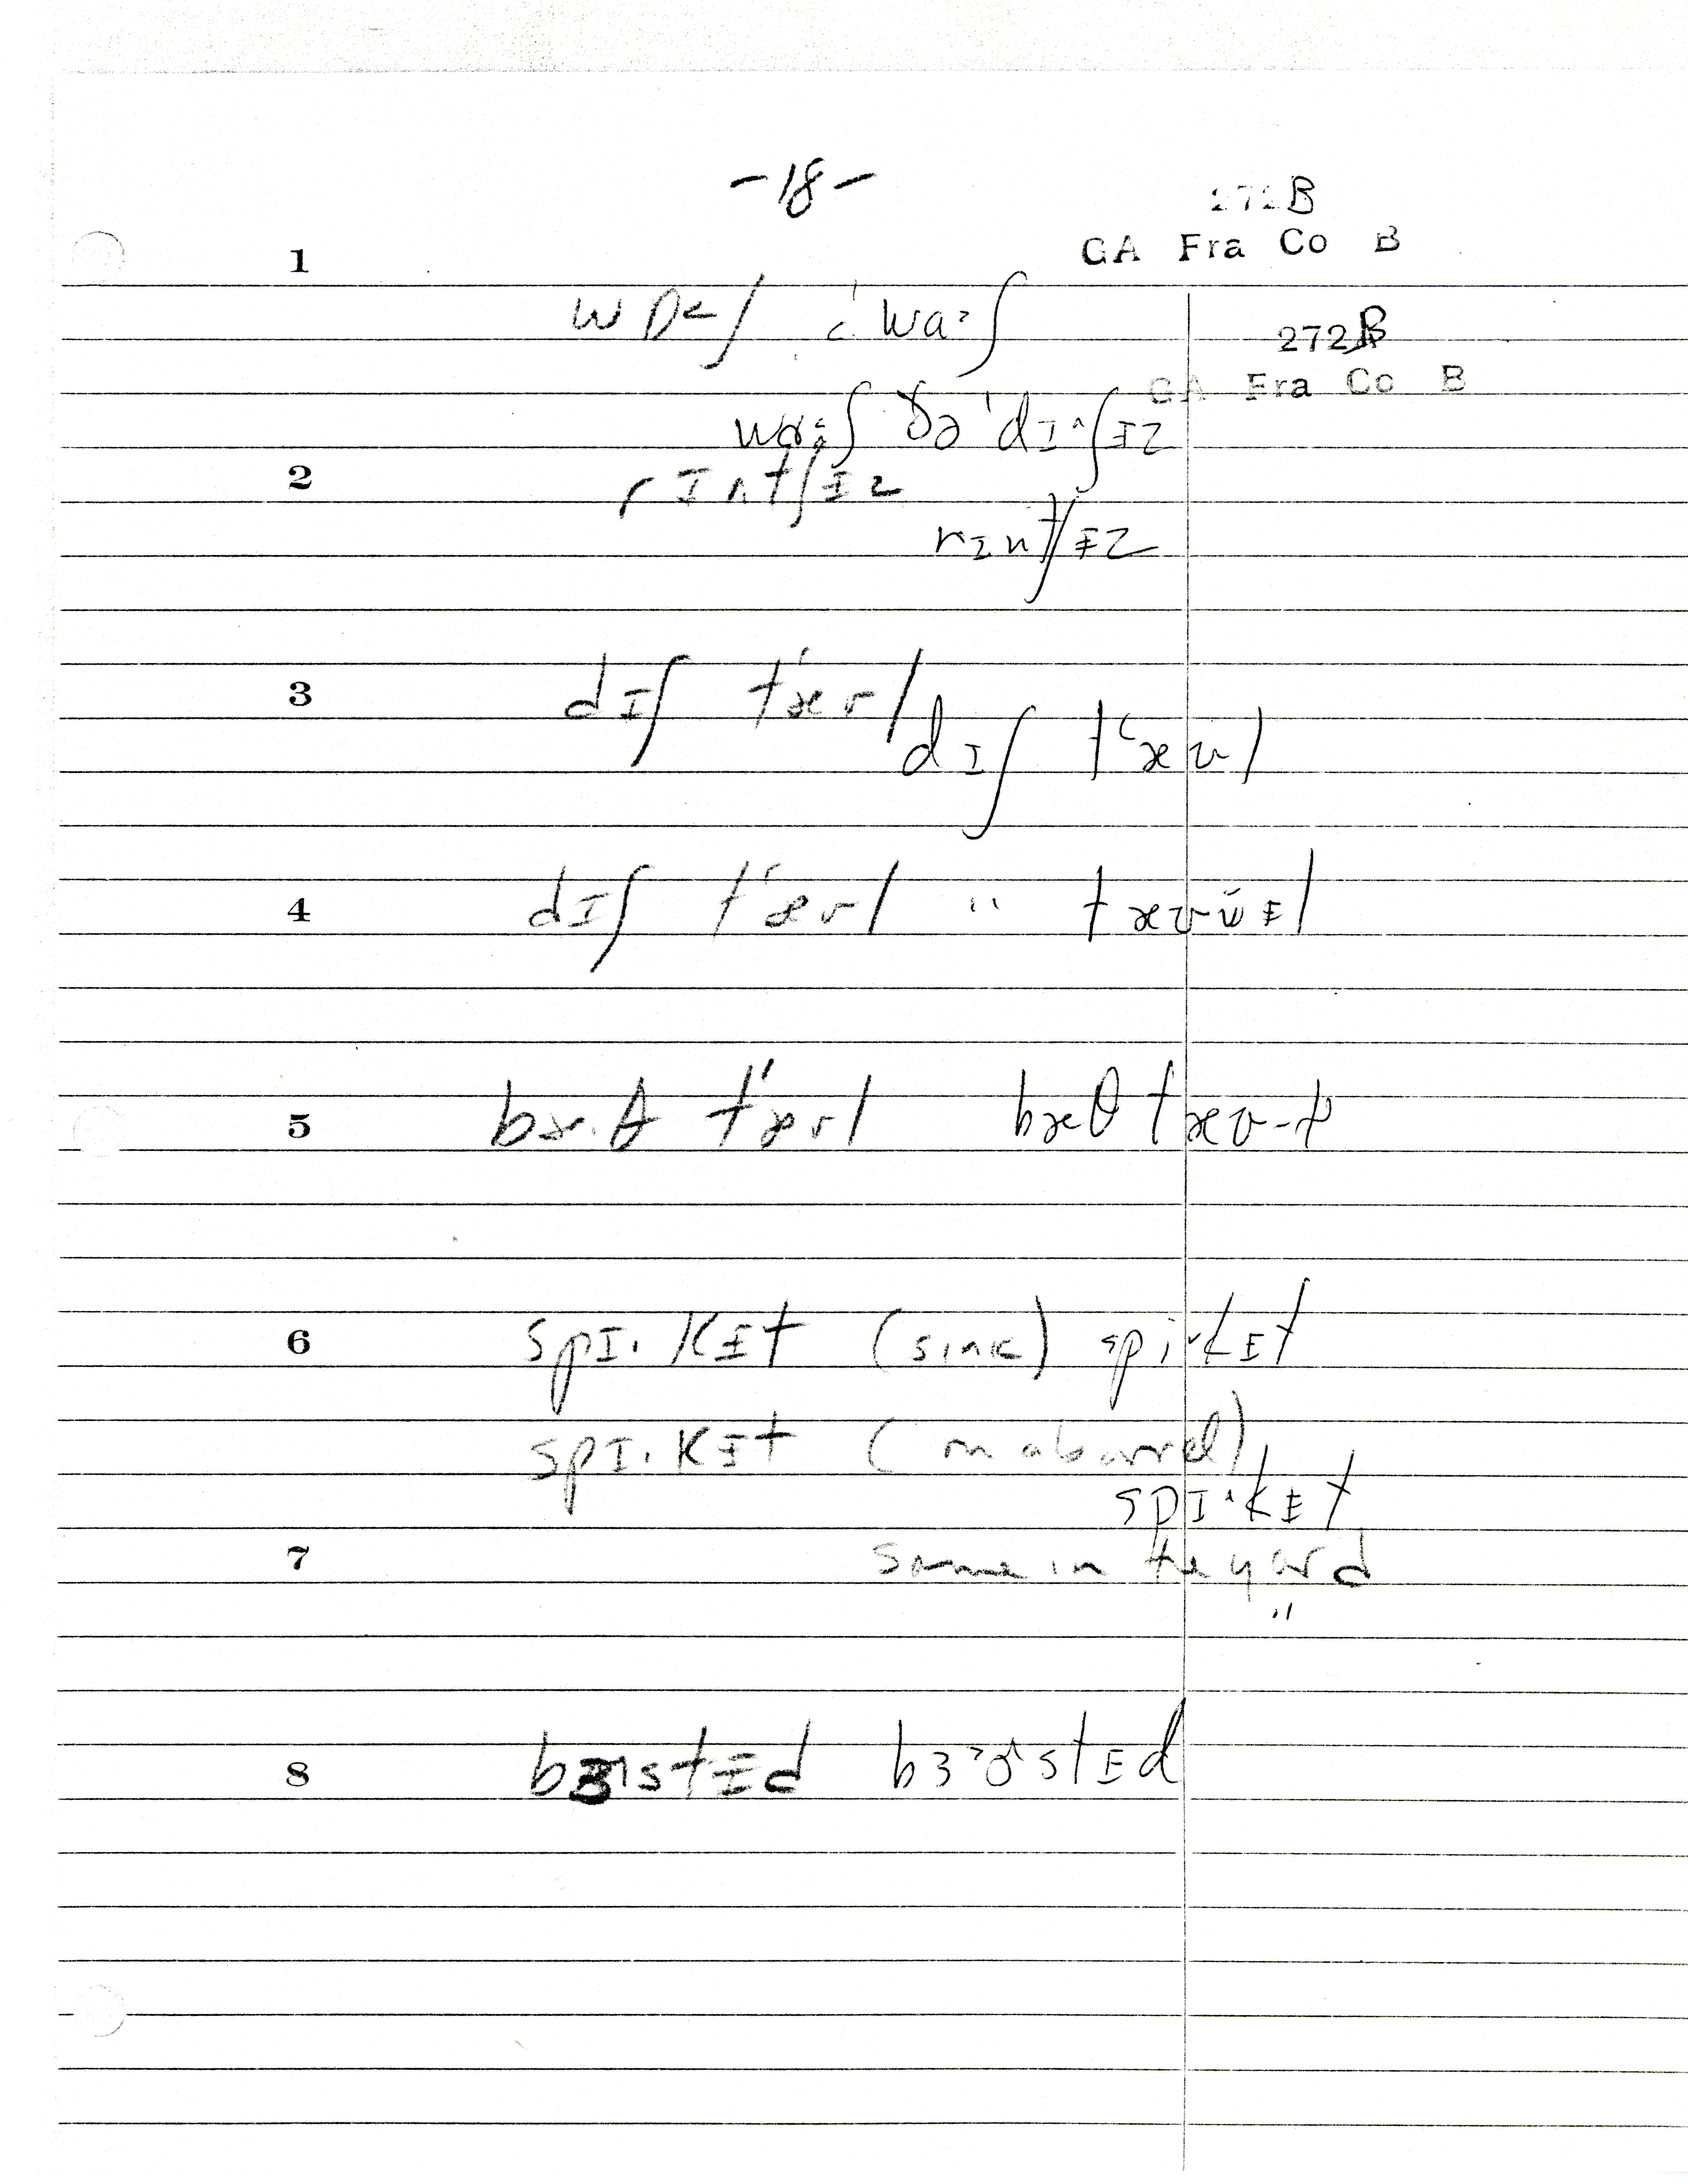 -18-
272B
GA Fra Co B
1
wɒ<ʃ ˈwa>ʃ
272B
GA Fra Co B
wɑ:ʃ ðə ˈdɪ^ʃɨz
2 rɪntʃɨz
rɪntʃɨz
3 dɪʃ tʻæʊl
dɪʃ tʻæʊl
4 dɪʃ tʻæʊl " tæʊwɨl
5 bæ·θ tʻæʊl bæθ tæʊ-ɫ
6 spɪ·kɨt (sink) spi^kɨt
spɪ·kɨt (on a barrel)
spɪ^kɨt
7 same in the yard
"
8 bɜ˞stɨd bɜ>ɚstɨd